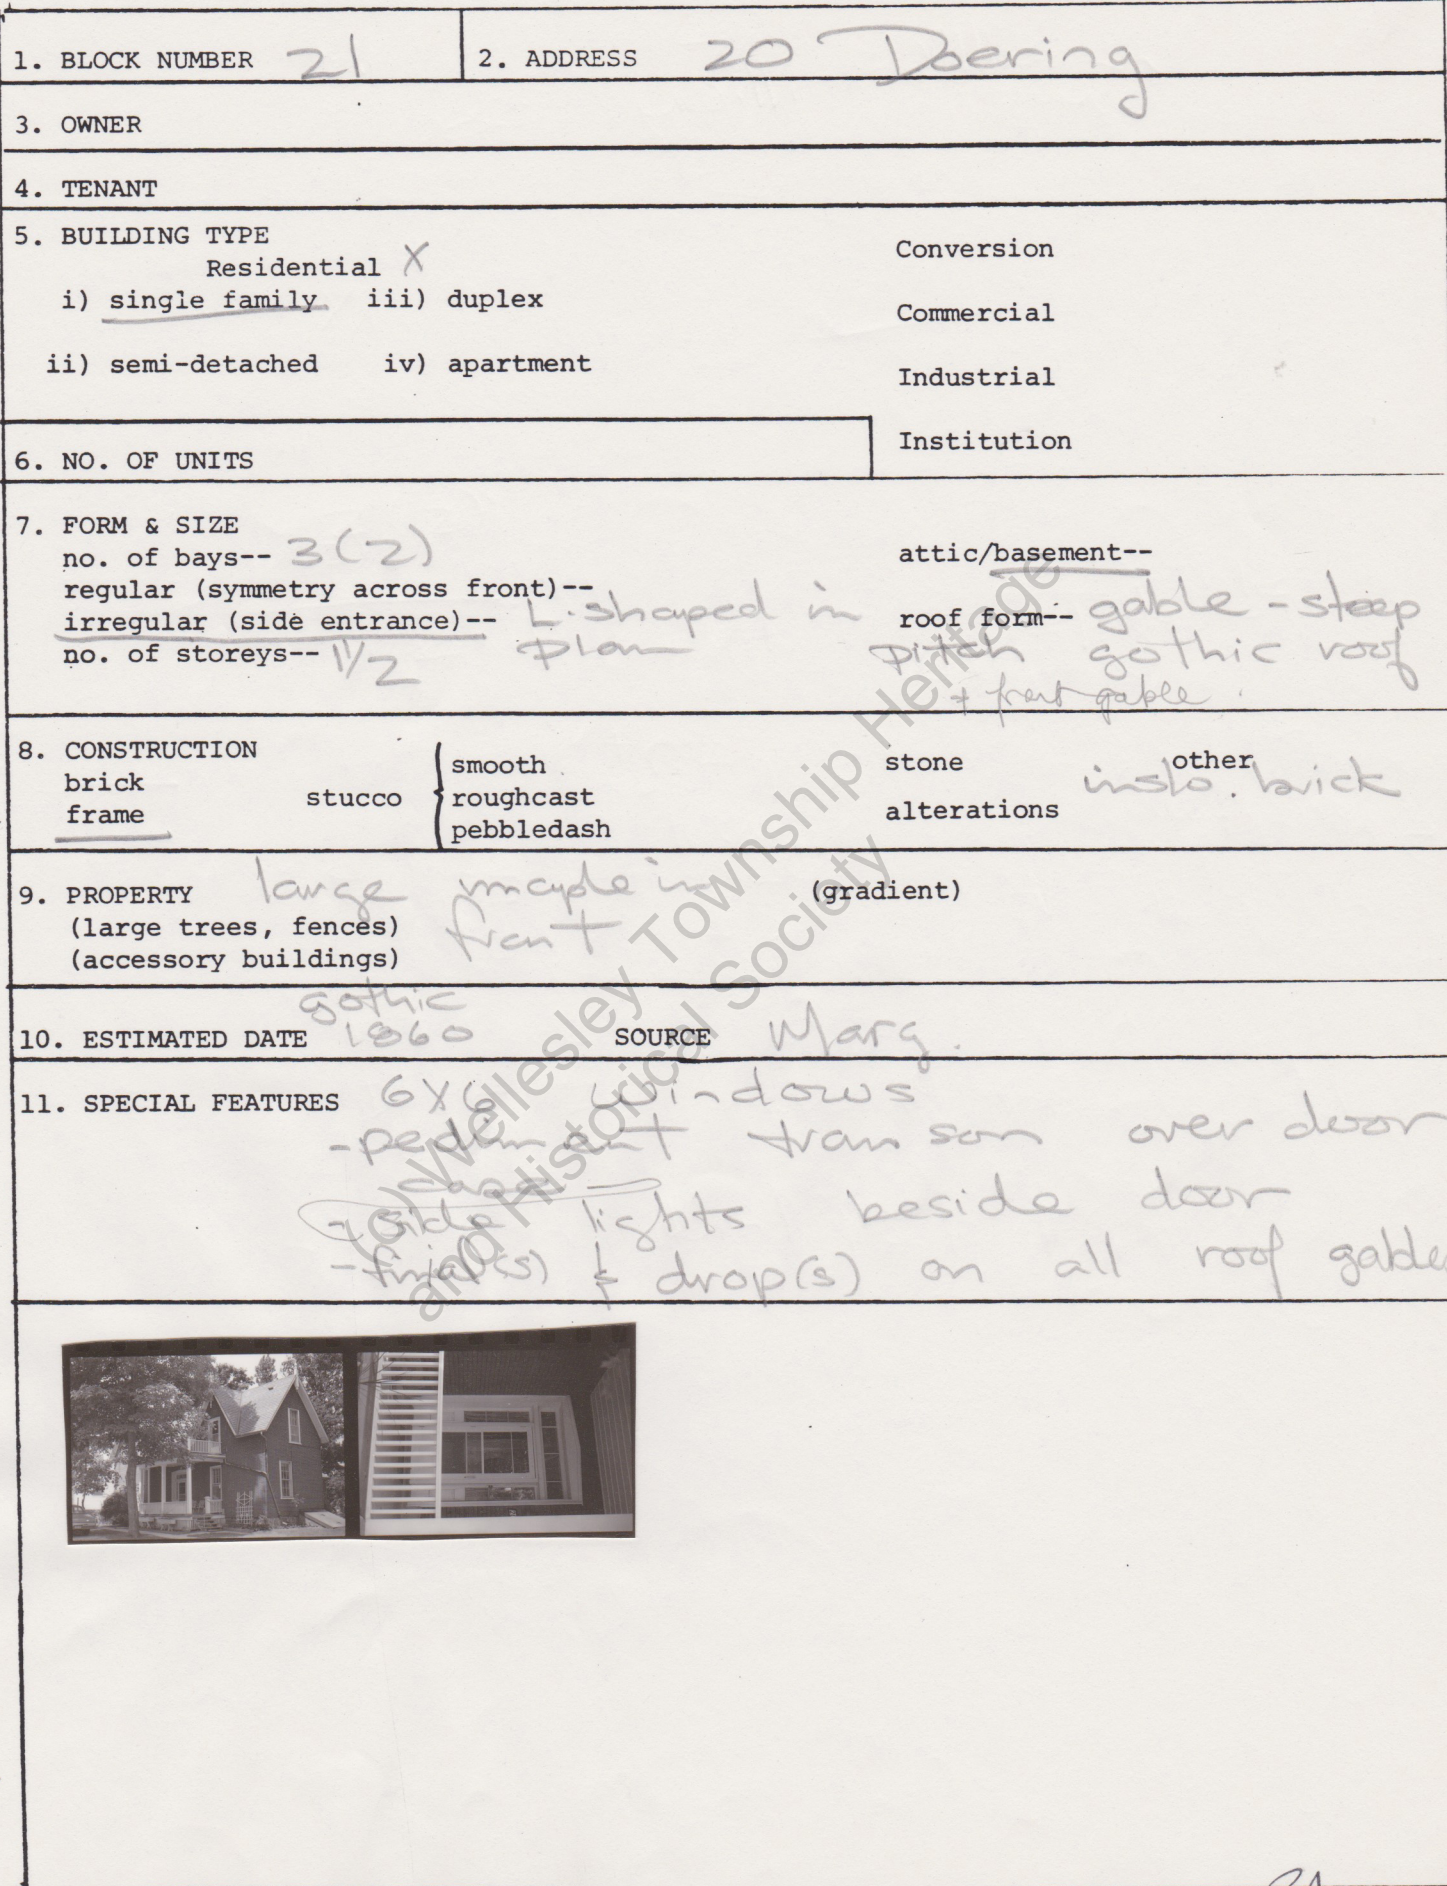 1. BLOCK NUMBER 21 2. ADDRESS 20 Doering
3. OWNER
4. TENANT
5. BUILDING TYPE
Residential X
Conversion
i) single family iii) duplex
Commercial
ii) semi-detached iv) apartment
Industrial
Institution
6. NO. OF UNITS
7. FORM & SIZE
no. of bays-- 3(2) attic/basement--
regular (symmetry across front)--
irregular (side entrance)-- L-shaped in roof form-- gable - steep
no. of storeys-- 1 1/2 plan pitch gothic roof
+ front gable.
8. CONSTRUCTION
brick
frame
stucco
smooth
roughcast
pebbledash
stone other
alterations
brick
9. PROPERTY large maple in (gradient)
(large trees, fences) front
(accessory buildings)
gothic
10. ESTIMATED DATE 1860 SOURCE Marg.
11. SPECIAL FEATURES 6X6 windows
- pediment transom over door
- side lights beside door
- finial(s) & drop(s) on all roof gable
(c) Wellesley Township Heritage
and Historical Society